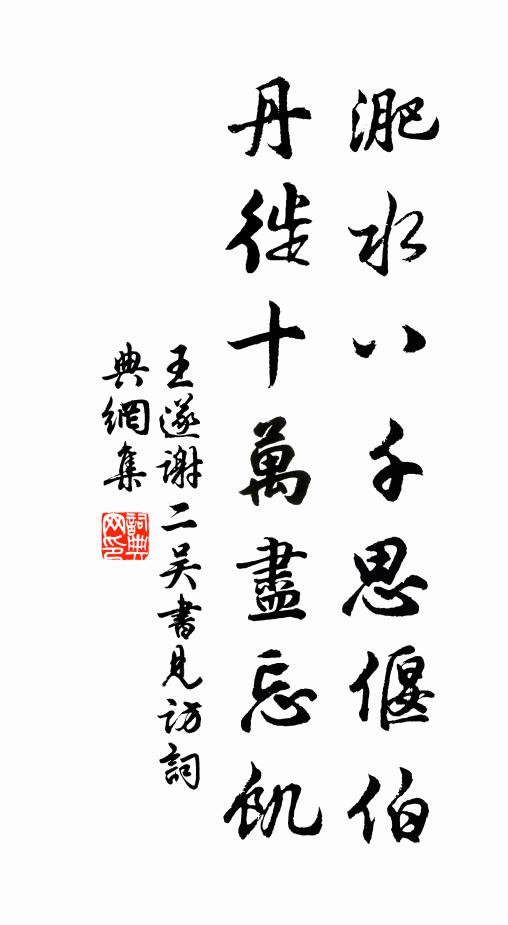 淝水八千思偃伯
丹徙十萬盡忘飢
王遂謝二吳書見訪詞
典網集
詞典網印